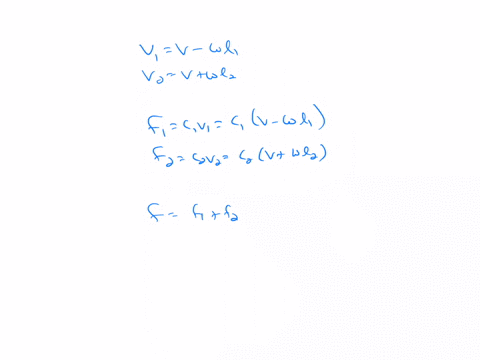 V₁ = V − ωl₁
V₂ = V + ωl₂
F₁ = C₁V₁ = C₁ (V − ωl₁)
F₂ = C₂V₂ = C₂ (V + ωl₂)
F = F₁ + F₂